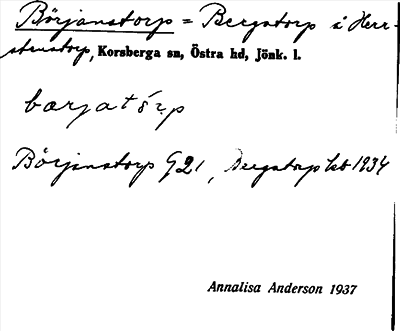 Börjanstorp = Bergstorp i Herr-
stenstorp, Korsberga sn, Östra hd, Jönk. l.
bærjatórp
Börjanstorp G21, Bergstorp kb 1934
Annalisa Anderson 1937